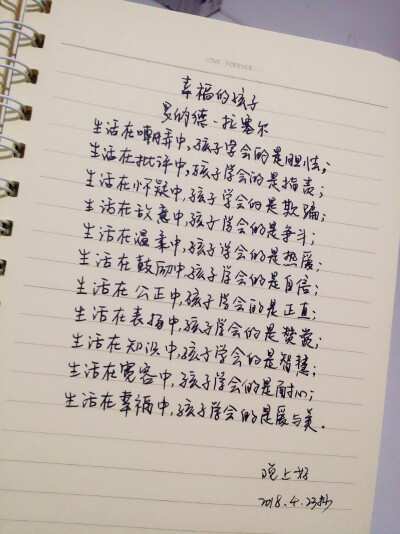 LOVE FOREVER
幸福的孩子
多纳德·拉塞尔
生活在嘲弄中,孩子学会的是胆怯;
生活在批评中,孩子学会的是指责;
生活在怀疑中,孩子学会的是欺骗;
生活在敌意中,孩子学会的是争斗;
生活在温柔中,孩子学会的是热爱;
生活在鼓励中,孩子学会的是自信;
生活在公正中,孩子学会的是正直;
生活在表扬中,孩子学会的是赞赏;
生活在知识中,孩子学会的是智慧;
生活在宽容中,孩子学会的是耐心;
生活在幸福中,孩子学会的是爱与美.
晚上好
2018.4.23抄